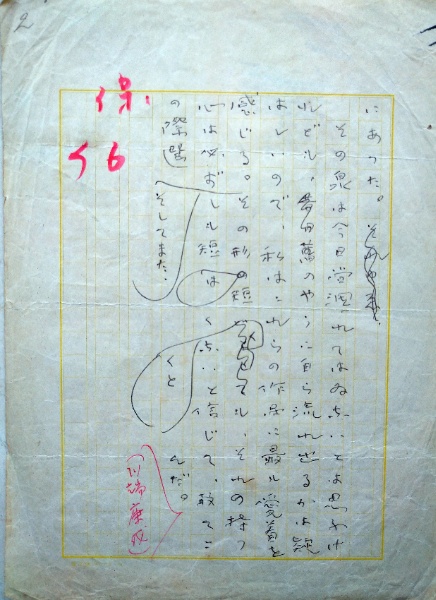 2
にあつた。
その泉は今日涸れてはゐないとは思はけ
れども、のやうに自ら流れ出るかは疑
はしいので、私はこれらの作品に最も愛着を
感じる。その形の短ても、それの持つ
心は必ずしも短くないと信じて、敢てこ
の際選んだ。
そしてまた、
くと
(川端康成)